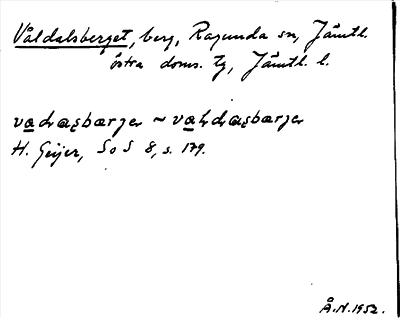 Våldalsberget, berg, Ragunda sn, Jämtl.
östra doms. tg, Jämtl. l.
H. Geijer, SoS 8, s. 179.
Å.N. 1952.